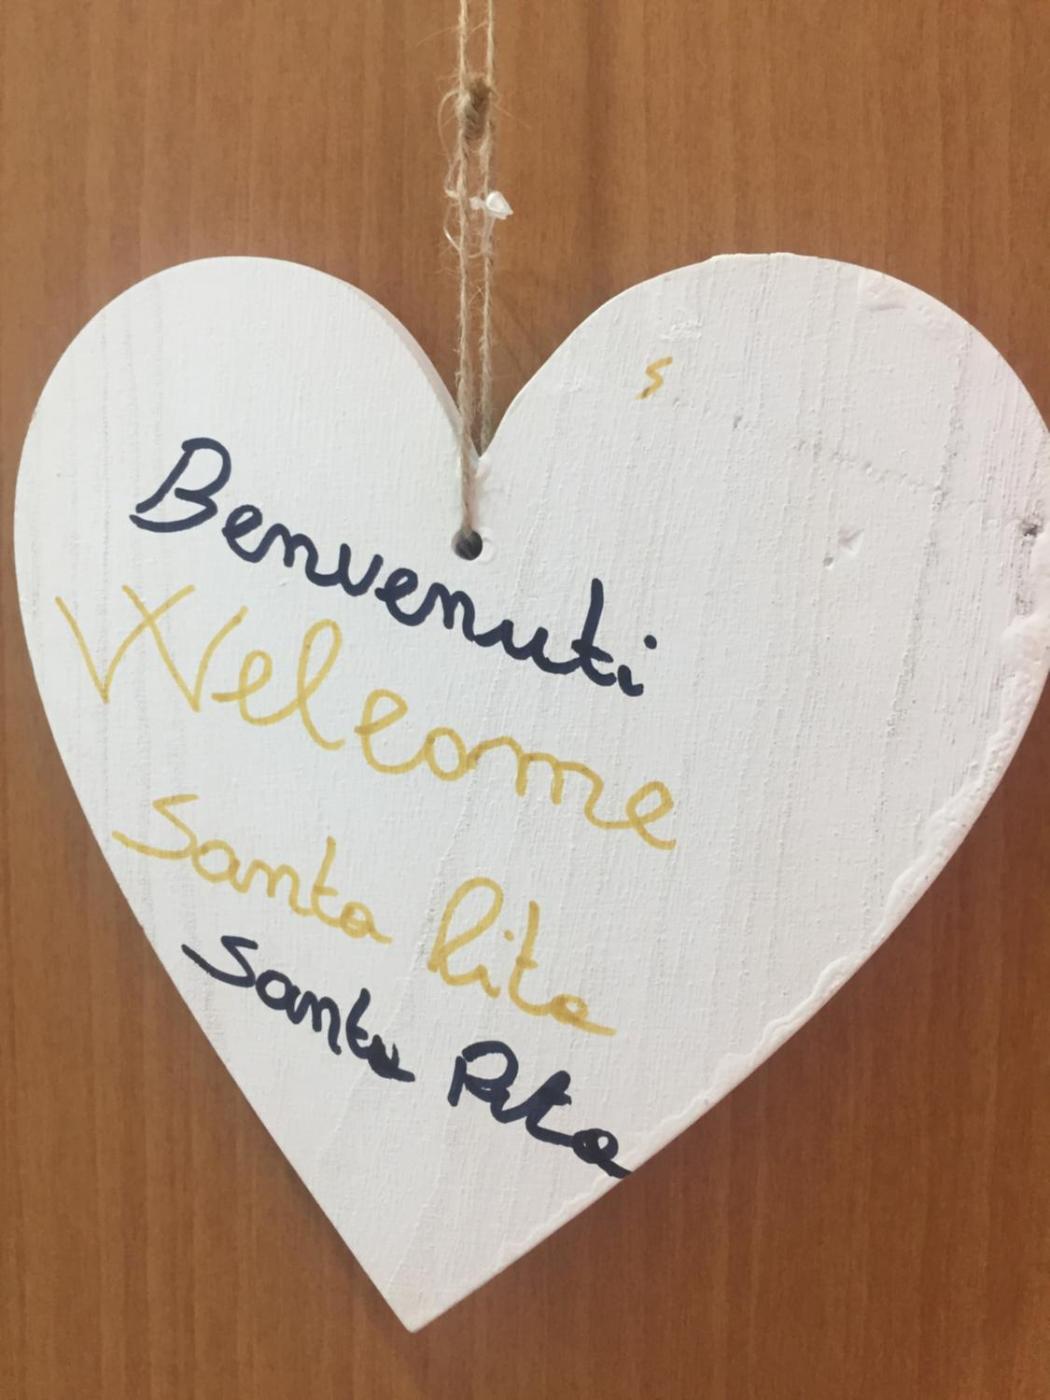 s
Benvenuti
Welcome
Santa Rita
Santa Rita